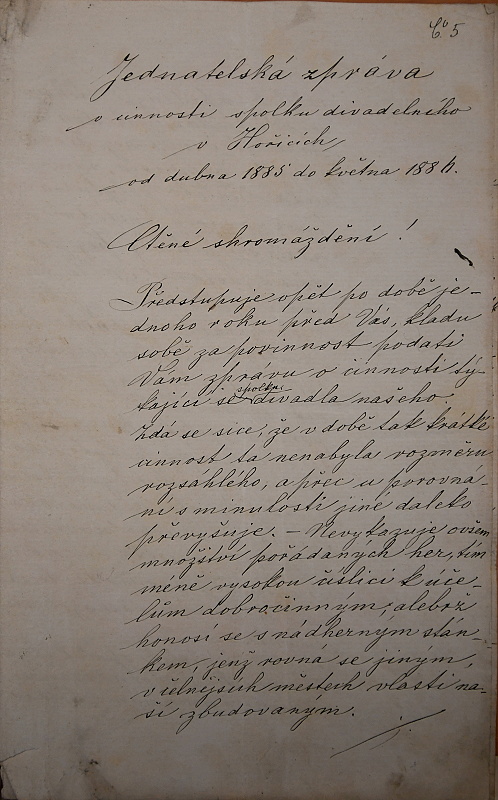 Č. 5
Jednatelská zpráva
o činnosti spolku divadelního
v Hořicích,
od dubna 1885 do května 1886.
Ctěné shromáždění!
Předstupuje opět po době je-
dnoho roku před Vás, kladu
sobě za povinnost podati
Vám zprávu o činnosti tý-
kající se spolku divadla našeho.
Zdá se sice, že v době tak krátké
činnost ta nenabyla rozměru
rozsáhlého, a přec u porovná-
ní s minulostí jiné daleko
převyšuje. – Nevykazuje ovšem
množství pořádaných her, tím
méně vysokou číslici k úče-
lům dobročinným, alebrž
honosí se s nádherným stán-
kem, jenž rovná se jiným,
v čelnějších městech vlasti na-
ší zbudovaným.